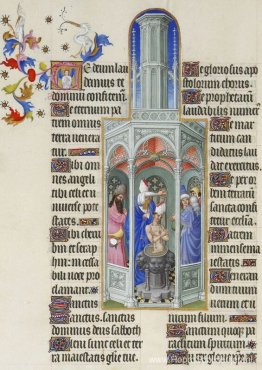 Te deum lau
damus te
dominum confitemur.
Te eternum pa
trem omnis
terra veneratur.
Tibi om
nes angeli
tibi celi et
universe pote
states.
Tibi cheru
bin et seraphin
inces
sabili voce pro
clamant.
Sanctus
Sanctus. sanctus
dominus deus sabaoth
Pleni sunt celi et ter
ra maiestatis glorie tue.
Te gloriosus apo
stolorum chorus.
Te prophetarum
laudabilis numerus
Te mar
tirum can
didatus lau
dat exercitus.
Te per or
bem terrarum
sancta confi
tetur ecclesia.
Patrem
immense ma
iestatis.
Veneran
dum tuum
verum et u
nicum filium.
Sanctum quoque pa
raclitum spiritum.
Tu rex glorie xpe.